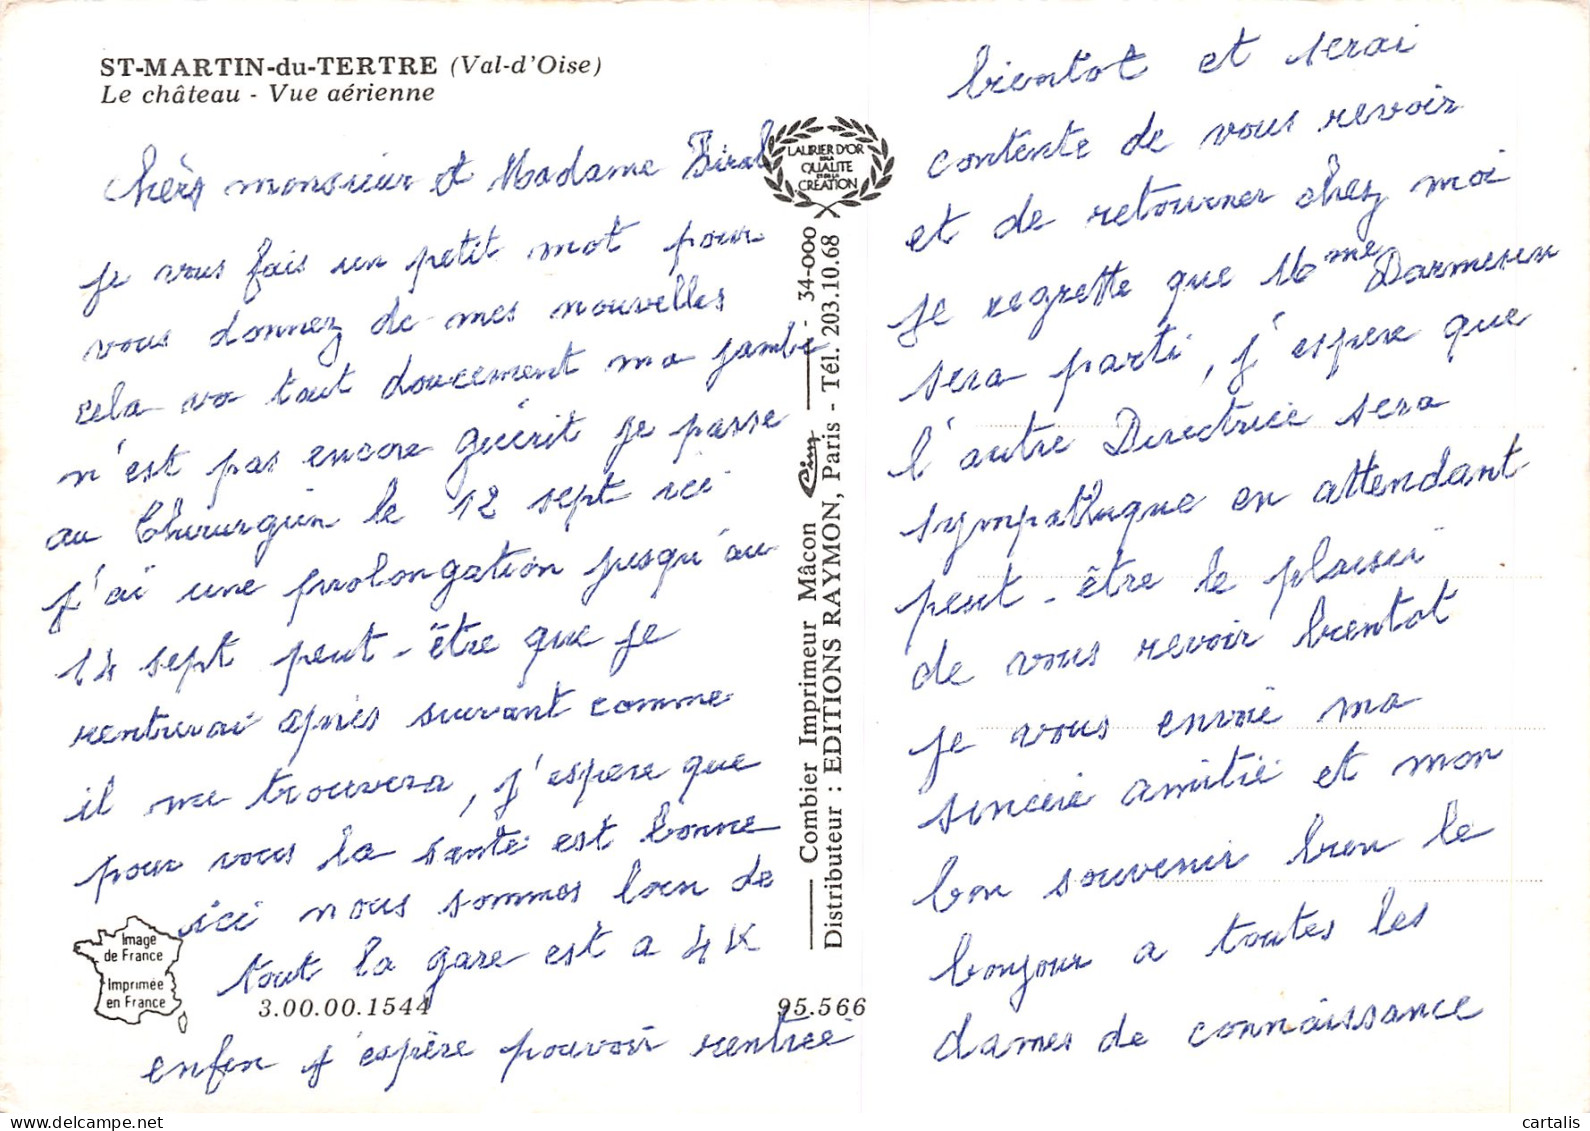 ST-MARTIN-du-TERTRE (Val-d'Oise)
Le château - Vue aérienne
chèrs monsieur et Madame
je vous fais un petit mot pour
vous donnez de mes nouvelles
cela va tout doucement ma jambe
n'est pas encore guérit je passe
au Chirurgien le 12 sept ici
j'ai une prolongation jusqu'au
14 sept peut-être que je
rentrerai après suivant comme
il me trouvera, j'espere que
pour vous la santé est bonne
ici nous sommes loin de
tout la gare est a 4 K
enfin j'espère pouvoir rentrée
bientot et serai
contente de vous revoir
et de retourner chez moi
je regrette que Mme
sera parti, j'espere que
l'autre Directrice sera
sympathique en attendant
peut-être le plaisir
de vous revoir bientot
je vous envoie ma
sincère amitié et mon
bon souvenir bien le
bonjour a toutes les
dames de connaissance
LAURIER D'OR
DE LA
QUALITE
ET DE LA
CREATION
Combier Imprimeur Mâcon Cim - 34-000
Distributeur : EDITIONS RAYMON, Paris - Tél. 203.10.68
Image
de France
Imprimée
en France
3.00.00.1544
95.566
www.delcampe.net
cartes_collection